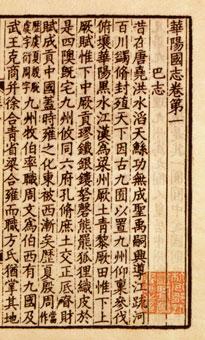 華陽國志卷第一
巴志
昔在唐堯洪水滔天鯀功無成聖禹嗣興導江疏河
百川蠲脩封殖天下因古九囿以置九州仰稟參伐
俯壤華陽黑水江漢為梁州厥土青黎厥田惟下上
厥賦惟下中厥貢璆鐵銀鏤砮磬熊羆狐狸織皮於
是四隩既宅九州攸同六府孔脩庶土交正厎慎財
賦成貢中國蓋時雍之化東被西漸矣歷夏殷周
九州牧伯率職周文為伯西有九國及
武王克商并徐合青省梁合雍而職方氏猶掌其地